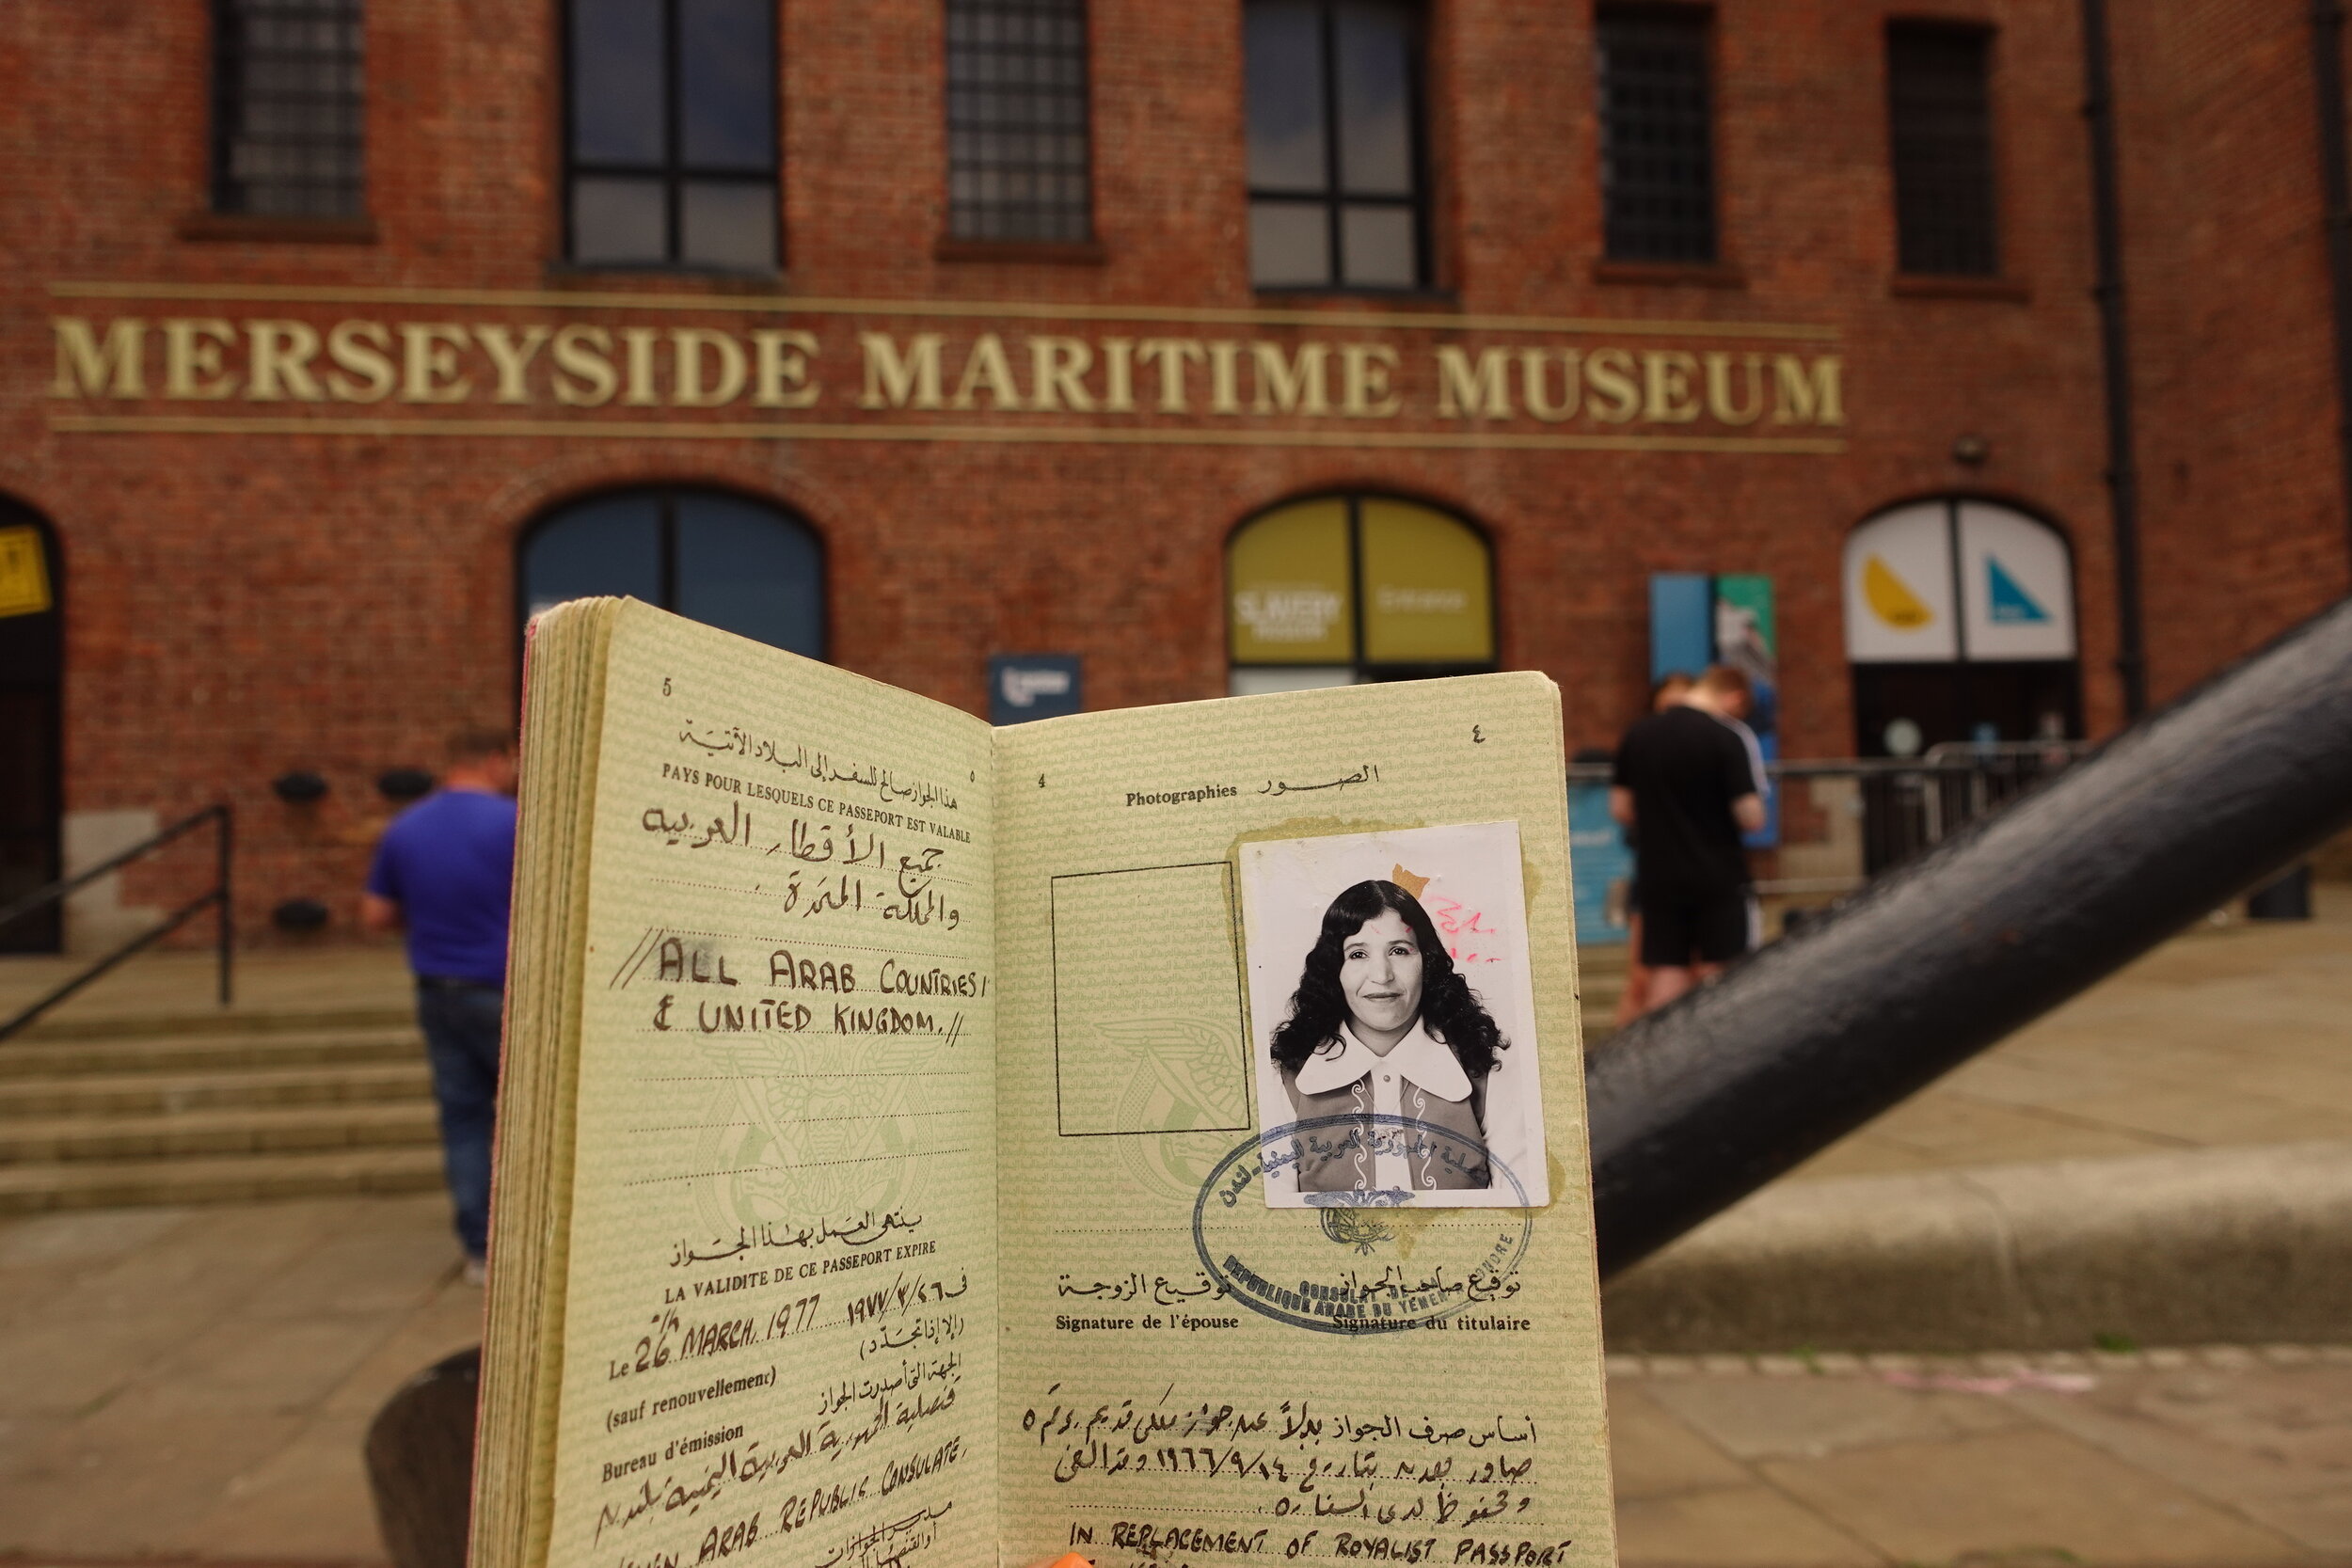 MERSEYSIDE MARITIME MUSEUM
SLAVERY
Entrance
5
٥
هذا الجواز صالح للسفر إلى البلاد الآتية
PAYS POUR LESQUELS CE PASSEPORT EST VALABLE
جميع الأقطار العربيه
والمملكة المتحدة
// ALL ARAB COUNTRIES /
& UNITED KINGDOM. //
ينتهى العمل بهذا الجواز
LA VALIDITE DE CE PASSEPORT EXPIRE
Le 26 MARCH, 1977 ١٩٧٧/٣/٢٦ في
(إلا إذا تجدد)
(sauf renouvellement)
الجهة التى أصدرت الجواز
Bureau d'émission
قنصلية الجمهورية العربية اليمنية بلندن
ARAB REPUBLIC CONSULATE,
مدير الجوازات
4
٤
Photographies الصور
قنصلية الجمهورية العربية اليمنية - لندن
CONSULAT DE
REPUBLIQUE ARABE DU YEMEN
توقيع الزوجة
توقيع صاحب الجواز
Signature de l'épouse
Signature du titulaire
أساس صرف الجواز بدلاً عن جواز ملكي قديم رقم ٥
صادر بتاريخ ١٩٦٦/٩/١٤ وقد الغي
IN REPLACEMENT OF ROYALIST PASSPORT